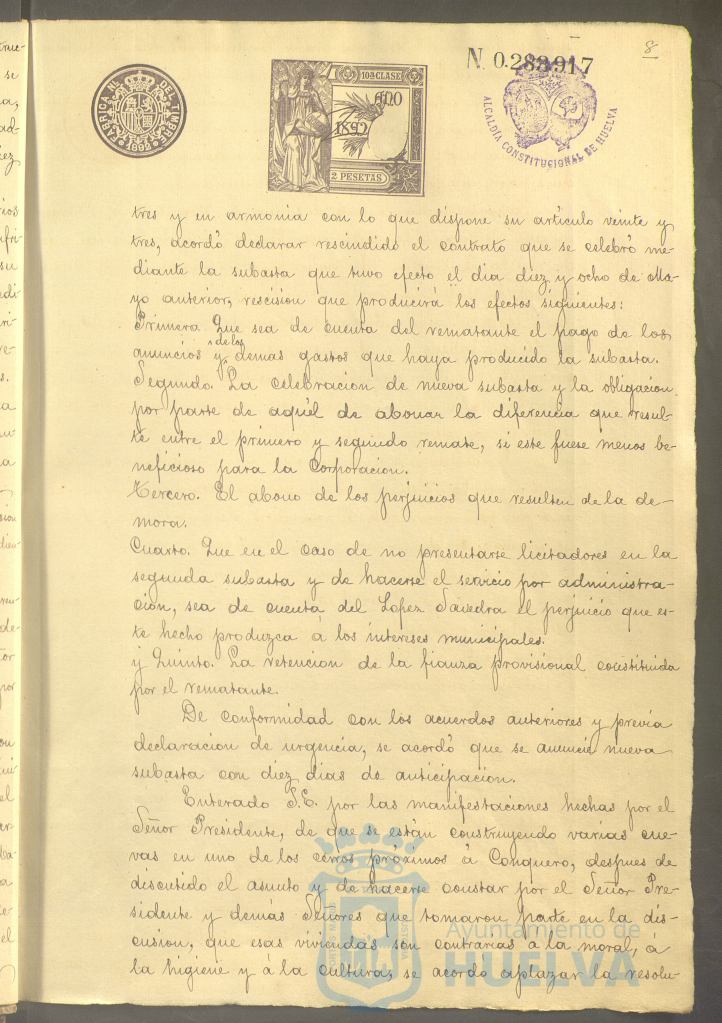 8
N. 0.288.917
FABRICA NL DEL TIMBRE
1892
10ª CLASE
AÑO
1892
2 PESETAS
ALCALDÍA CONSTITUCIONAL DE HUELVA
tres y en armonia con lo que dispone su artículo veinte y
tres, acordó declarar rescindido el contrato que se celebró me-
diante la subasta que tuvo efecto el dia diez y ocho de Ma-
yo anterior, rescision que producirá los efectos siguientes:
Primera Que sea de cuenta del rematante el pago de los
anuncios y de los demas gastos que haya producido la subasta.
Segundo. La celebracion de nueva subasta y la obligacion
por parte de aquél de abonar la diferencia que resul-
te entre el primero y segundo remate, si este fuese menos be-
neficioso para la Corporacion.
Tercero. El abono de los perjuicios que resulten de la de-
mora.
Cuarto. Que en el caso de no presentarse licitadores en la
segunda subasta y de hacerse el servicio por administra-
ción, sea de cuenta del Lopez Saavedra el perjuicio que es-
te hecho produzca á los intereses municipales.
y Quinto. La retencion de la fianza provisional constituida
por el rematante.
De conformidad con los acuerdos anteriores y previa
declaracion de urgencia, se acordó que se anuncie nueva
subasta con diez dias de anticipacion.
Enterado S.E. por las manifestaciones hechas por el
Señor Presidente, de que se están construyendo varias cue-
vas en uno de los cerros próximos á Conquero, despues de
discutido el asunto y de hacerse constar por el Señor Pre-
sidente y demás Señores que tomaron parte en la dis-
cusion, que esas viviendas son contrarias á la moral, á
la higiene y á la cultura, se acordó aplazar la resolu-
Ayuntamiento de
HUELVA